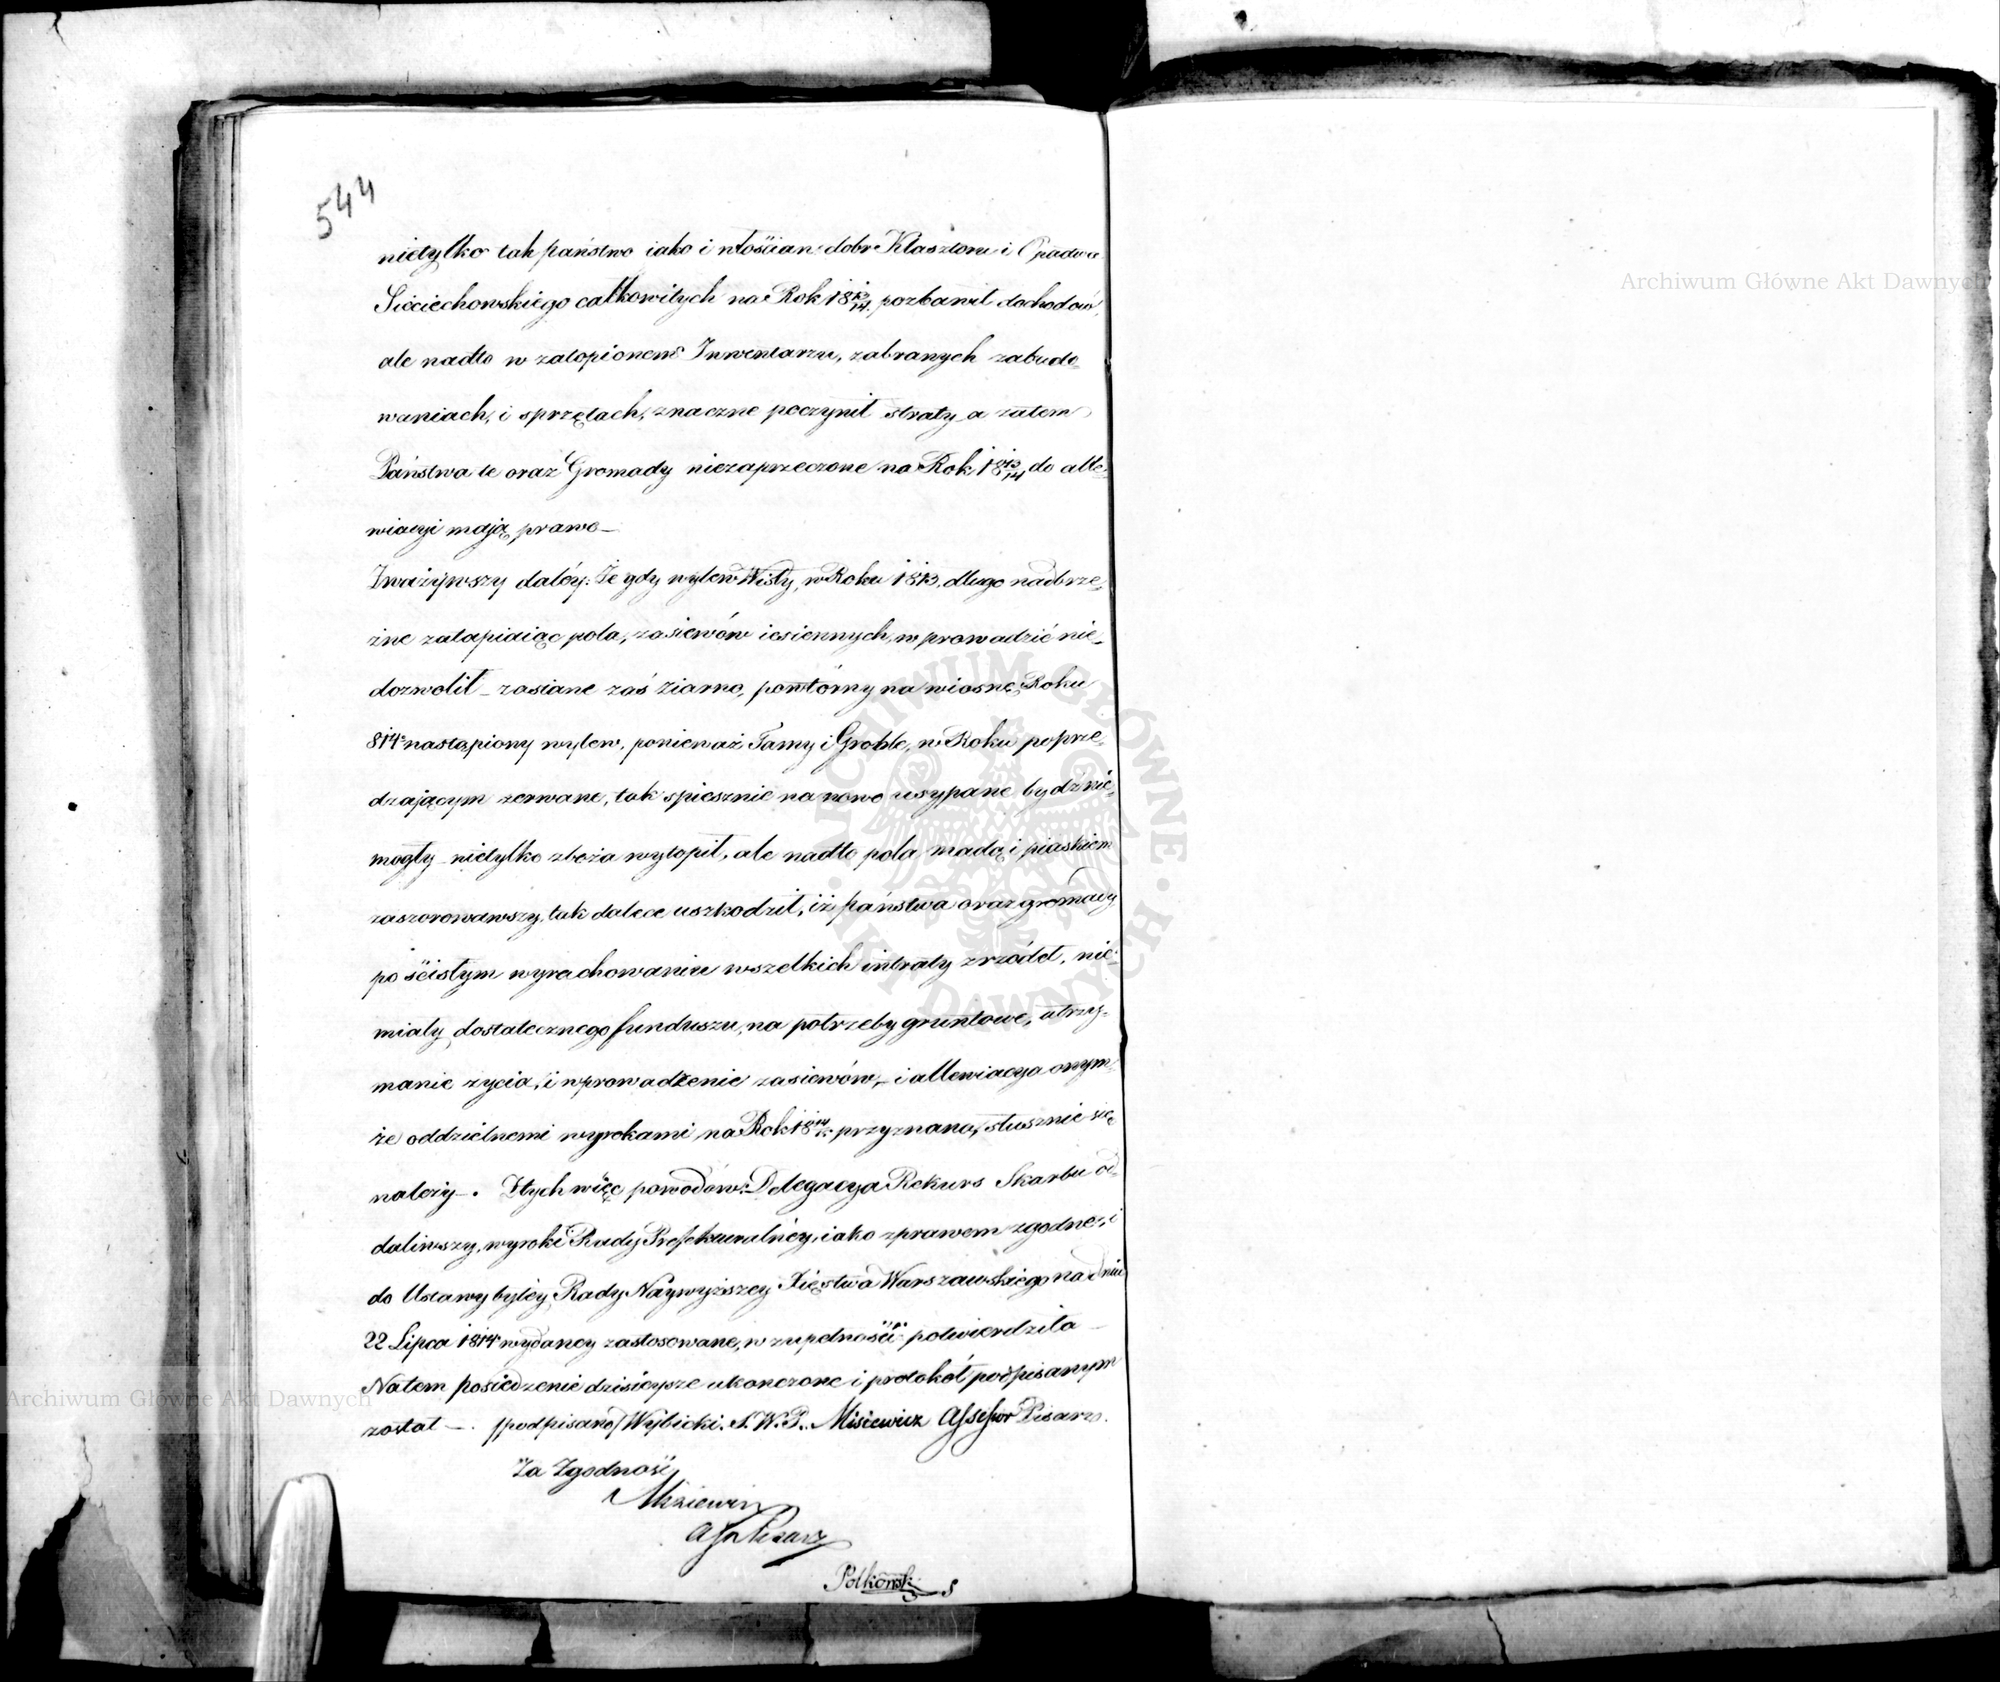 544
nietylko tak państwo iako i włościan dobr Klasztoru i Opactwa
Sieciechowskiego całkowitych na Rok 18 13/14. pozbawił dochodów,
ale nadto w zatopionem Inwentarzu, zabranych zabudo-
waniach, i sprzętach, znaczne poczynił straty a zatem
Państwa te oraz Gromady niezaprzeczone na Rok 18 13/14 do alle-
wiacyi mają prawo —
Zważywszy daléy: Że gdy wylew Wisły, w Roku 1813, długo nadbrze-
żne zatapiaiąc pola, zasiewów iesiennych, wprowadzić nie-
dozwolił — zasiane zaś ziarno, powtórny na wiosnę Roku
814 nastąpiony wylew, ponieważ Tamy i Groble, w Roku poprze-
dzającym zerwane, tak spiesznie na nowo usypane bydź nie-
mogły nietylko zboża wytopił, ale nadto pola madą i piaskiem
zaszorowawszy, tak dalece uszkodził, iż państwa oraz gromady
po ścisłym wyrachowaniu wszelkich intraty źrzódeł, nie-
miały dostatecznego funduszu, na potrzeby gruntowe, utrzy-
manie życia, i wprowadzenie zasiewów, — i allewiacya onym-
że oddzielnemi wyrokami na Rok 18 14/15 przyznana, słusznie się
należy —. Z tych więc powodów: Delegacya Rekurs Skarbu od-
daliwszy, wyroki Rady Prefekturalnéy, iako z prawem zgodne, i
do Ustawy byłey Rady Naywyższey Xięstwa Warszawskiego na dniu
22 Lipca 1814 wydaney zastosowane, w zupełności potwierdziła —
Na tem posiedzenie dzisieysze ukonczone i protokół podpisanym
został —. /podpisano/ Wybicki. S. W. P. Misiewicz Assessor Pisarz.
Za Zgodność
Misiewicz
Ass Pisarz
Polkowski